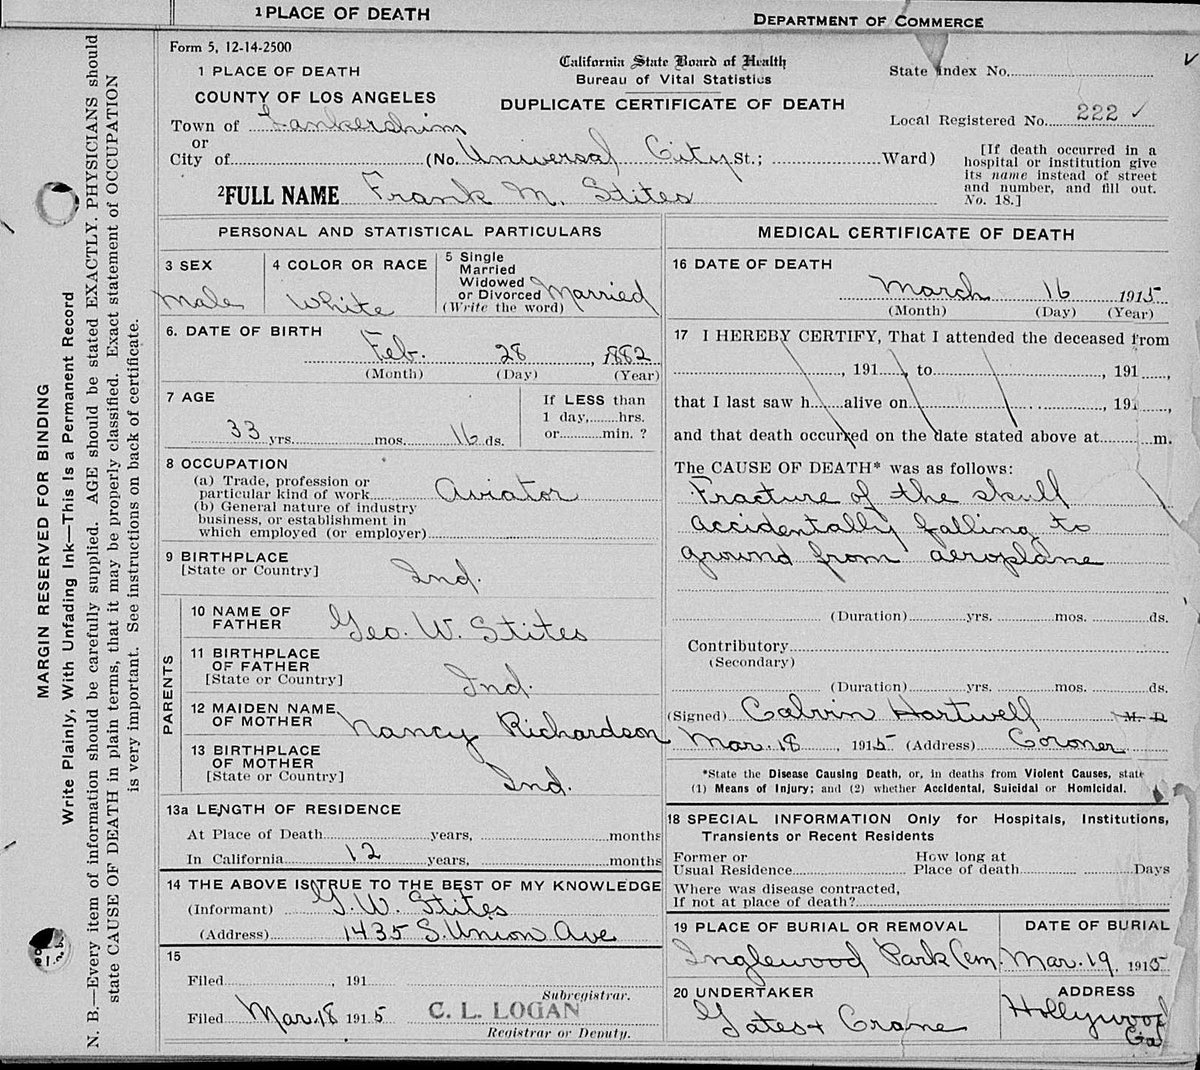 1 PLACE OF DEATH
DEPARTMENT OF COMMERCE
Form 5, 12-14-2500
1 PLACE OF DEATH
COUNTY OF LOS ANGELES
Town of Lankershim
or
City of (No. Universal City St.; Ward)
California State Board of Health
Bureau of Vital Statistics
DUPLICATE CERTIFICATE OF DEATH
State Index No.
Local Registered No. 222 ✓
[If death occurred in a
hospital or institution give
its name instead of street
and number, and fill out.
No. 18.]
2 FULL NAME Frank M. Stites
PERSONAL AND STATISTICAL PARTICULARS
3 SEX
Male
4 COLOR OR RACE
White
5 Single
Married
Widowed
or Divorced Married
(Write the word)
6. DATE OF BIRTH
Feb. 28, 1882
(Month) (Day) (Year)
7 AGE
33 yrs. mos. 16 ds.
If LESS than
1 day, hrs.
or min. ?
8 OCCUPATION
(a) Trade, profession or
particular kind of work Aviator
(b) General nature of industry
business, or establishment in
which employed (or employer)
9 BIRTHPLACE
[State or Country] Ind.
PARENTS
10 NAME OF
FATHER Geo. W. Stites
11 BIRTHPLACE
OF FATHER
[State or Country] Ind.
12 MAIDEN NAME
OF MOTHER Nancy Richardson
13 BIRTHPLACE
OF MOTHER
[State or Country] Ind.
13a LENGTH OF RESIDENCE
At Place of Death years, months
In California 12 years, months
14 THE ABOVE IS TRUE TO THE BEST OF MY KNOWLEDGE
(Informant) G. W. Stites
(Address) 1435 S. Union Ave
15
Filed , 191
Subregistrar.
Filed Mar. 18 1915 C. L. LOGAN
Registrar or Deputy.
MEDICAL CERTIFICATE OF DEATH
16 DATE OF DEATH
March 16 1915
(Month) (Day) (Year)
17 I HEREBY CERTIFY, That I attended the deceased from
, 191 , to , 191 ,
that I last saw h alive on , 191 ,
and that death occurred on the date stated above at m.
The CAUSE OF DEATH* was as follows:
Fracture of the skull
accidentally falling to
ground from aeroplane
(Duration) yrs. mos. ds.
Contributory
(Secondary)
(Duration) yrs. mos. ds.
(Signed) Calvin Hartwell M. D
Mar. 18, 1915 (Address) Coroner
*State the Disease Causing Death, or, in deaths from Violent Causes, state
(1) Means of Injury; and (2) whether Accidental, Suicidal or Homicidal.
18 SPECIAL INFORMATION Only for Hospitals, Institutions,
Transients or Recent Residents
Former or
Usual Residence
How long at
Place of death Days
Where was disease contracted,
If not at place of death?
19 PLACE OF BURIAL OR REMOVAL
Inglewood Park Cem.
DATE OF BURIAL
Mar. 19, 1915
20 UNDERTAKER
Gates & Crane
ADDRESS
Hollywood
Ca
MARGIN RESERVED FOR BINDING
Write Plainly, With Unfading Ink—This Is a Permanent Record
N. B.—Every item of information should be carefully supplied. AGE should be stated EXACTLY. PHYSICIANS should
state CAUSE OF DEATH in plain terms, that it may be properly classified. Exact statement of OCCUPATION
is very important. See instructions on back of certificate.